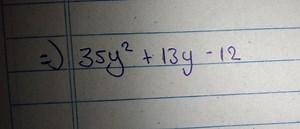 =) 35y² + 13y - 12